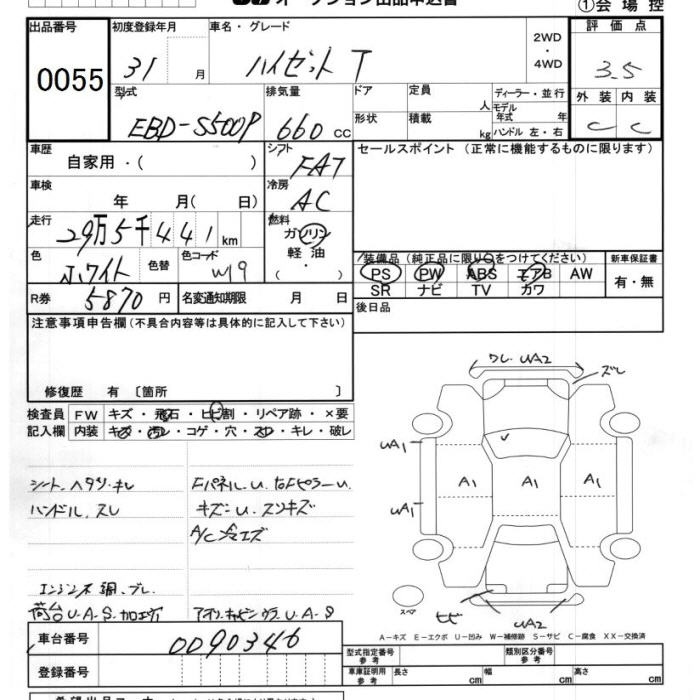 オークション出品申込書
①会場控
出品番号 初度登録年月 車名・グレード 2WD・4WD 評価点
0055 31 月 ハイゼット T 3.5
型式 排気量 ドア 定員 人 ディーラー・並行 外装 内装
EBD-S500P 660 cc 形状 積載 kg モデル年式 年 ハンドル 左・右 C C
車歴 シフト FAT セールスポイント（正常に機能するものに限ります）
自家用・（ ）
車検 冷房
年 月（ 日） AC
走行 29万5千441km 燃料
ガソリン・軽油・（ ）
色 ホワイト 色替 色コード W19
装備品（純正品に限り○をつけてください） 新車保証書
PS PW ABS エアB AW 有・無
SR ナビ TV カワ
R券 5870円 名変通知期限 月 日 後日品
注意事項申告欄（不具合内容等は具体的に記入して下さい）
ワレ. UA2
ズレ
修復歴 有〔箇所 〕
検査員 FW キズ・飛石・ヒビ割・リペア跡・×要
記入欄 内装 キズ・汚レ・コゲ・穴・スレ・キレ・破レ
UA1
シート.ヘタリ.キレ Fパネル.U.
A1 A1 A1
ハンドル.スレ キズ.U.
UA1
エンジン不調.ブレ.
荷台U.A.S.加工穴 U.A.S
スペア
ヒビ UA2
A－キズ E－エクボ U－凹み W－補修跡 S－サビ C－腐食 XX－交換済
車台番号 0090346
型式指定番号 参考 類別区分番号 参考
登録番号 車庫証明用 参考 長さ cm 幅 cm 高さ cm